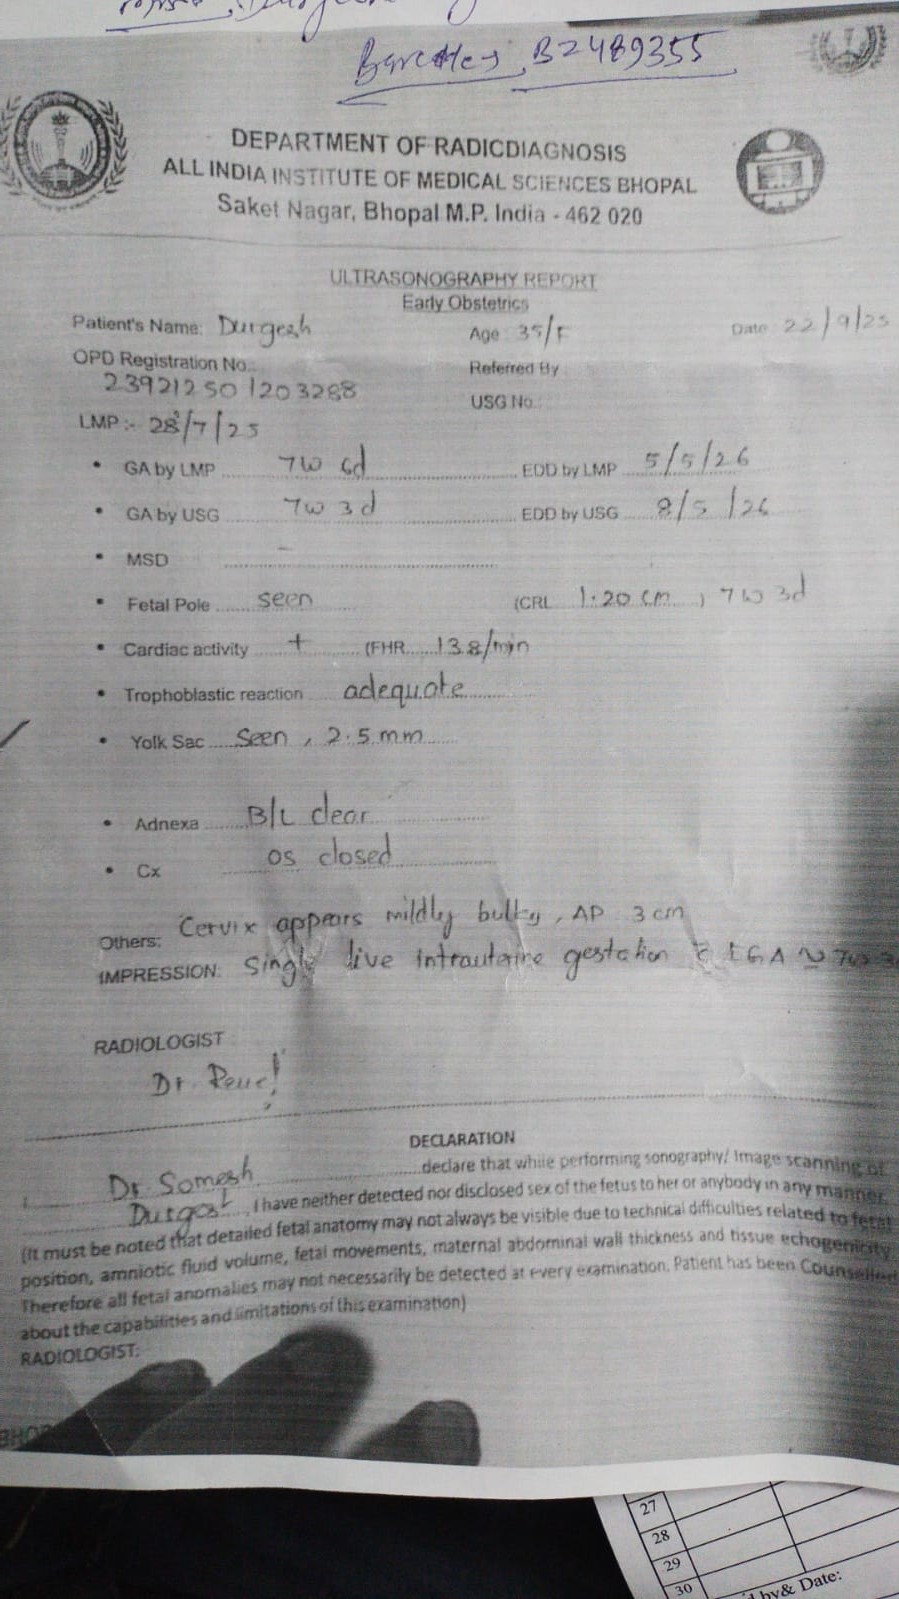 B2489355
DEPARTMENT OF RADICDIAGNOSIS
ALL INDIA INSTITUTE OF MEDICAL SCIENCES BHOPAL
Saket Nagar, Bhopal M.P. India - 462 020
ULTRASONOGRAPHY REPORT
Early Obstetrics
Patient's Name: Durgesh Age 35/F Date 22/9/25
OPD Registration No. Referred By
23921250 1203288
USG No.
LMP :- 28/7/25
• GA by LMP 7w 6d EDD by LMP 5/5/26
• GA by USG 7w 3d EDD by USG 8/5/26
• MSD -
• Fetal Pole seen (CRL 1.20 cm, 7w 3d
• Cardiac activity + (FHR 138/min
• Trophoblastic reaction adequate
• Yolk Sac Seen, 2.5 mm
• Adnexa B/L clear
• Cx os closed
Others: Cervix appears mildly bulky, AP 3 cm
IMPRESSION: Single live intrauterine gestation c GA ≃ 7w
RADIOLOGIST
Dr.
DECLARATION
I Dr. Somesh declare that while performing sonography/ Image scanning of
Durgesh, I have neither detected nor disclosed sex of the fetus to her or anybody in any manner.
(It must be noted that detailed fetal anatomy may not always be visible due to technical difficulties related to fetal
position, amniotic fluid volume, fetal movements, maternal abdominal wall thickness and tissue echogenicity
Therefore all fetal anomalies may not necessarily be detected at every examination. Patient has been Counselled
about the capabilities and limitations of this examination)
RADIOLOGIST:
27
28
29
30
by& Date: